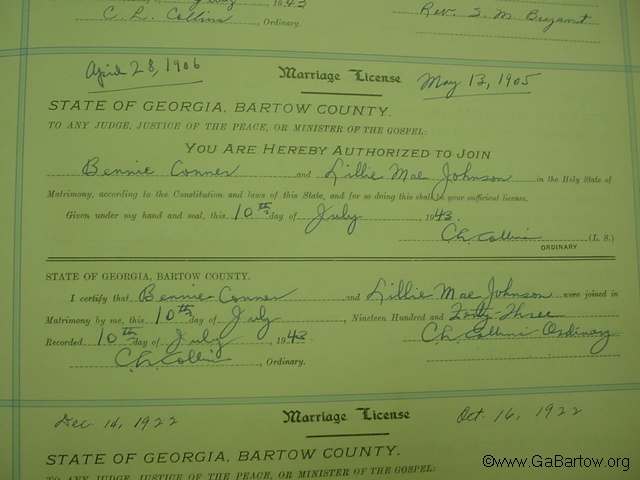 1943
C. L. Collins, Ordinary.
Rev. S. M. Bryant
April 28, 1906 Marriage License May 13, 1905
STATE OF GEORGIA, BARTOW COUNTY.
TO ANY JUDGE, JUSTICE OF THE PEACE, OR MINISTER OF THE GOSPEL:
YOU ARE HEREBY AUTHORIZED TO JOIN
Bennie Conner and Lillie Mae Johnson in the Holy State of
Matrimony, according to the Constitution and laws of this State, and for so doing this shall be your sufficient license.
Given under my hand and seal, this 10th day of July 1943.
Ch. Collins (L. S.)
ORDINARY
STATE OF GEORGIA, BARTOW COUNTY.
I certify that Bennie Conner and Lillie Mae Johnson were joined in
Matrimony by me, this 10th day of July, Nineteen Hundred and Forty-Three
Recorded 10th day of July, 1943 Ch. Collins Ordinary
Ch. Collins, Ordinary.
Dec. 14, 1922 Marriage License Oct. 16, 1922
STATE OF GEORGIA, BARTOW COUNTY.
TO ANY JUDGE, JUSTICE OF THE PEACE, OR MINISTER OF THE GOSPEL:
©www.GaBartow.org